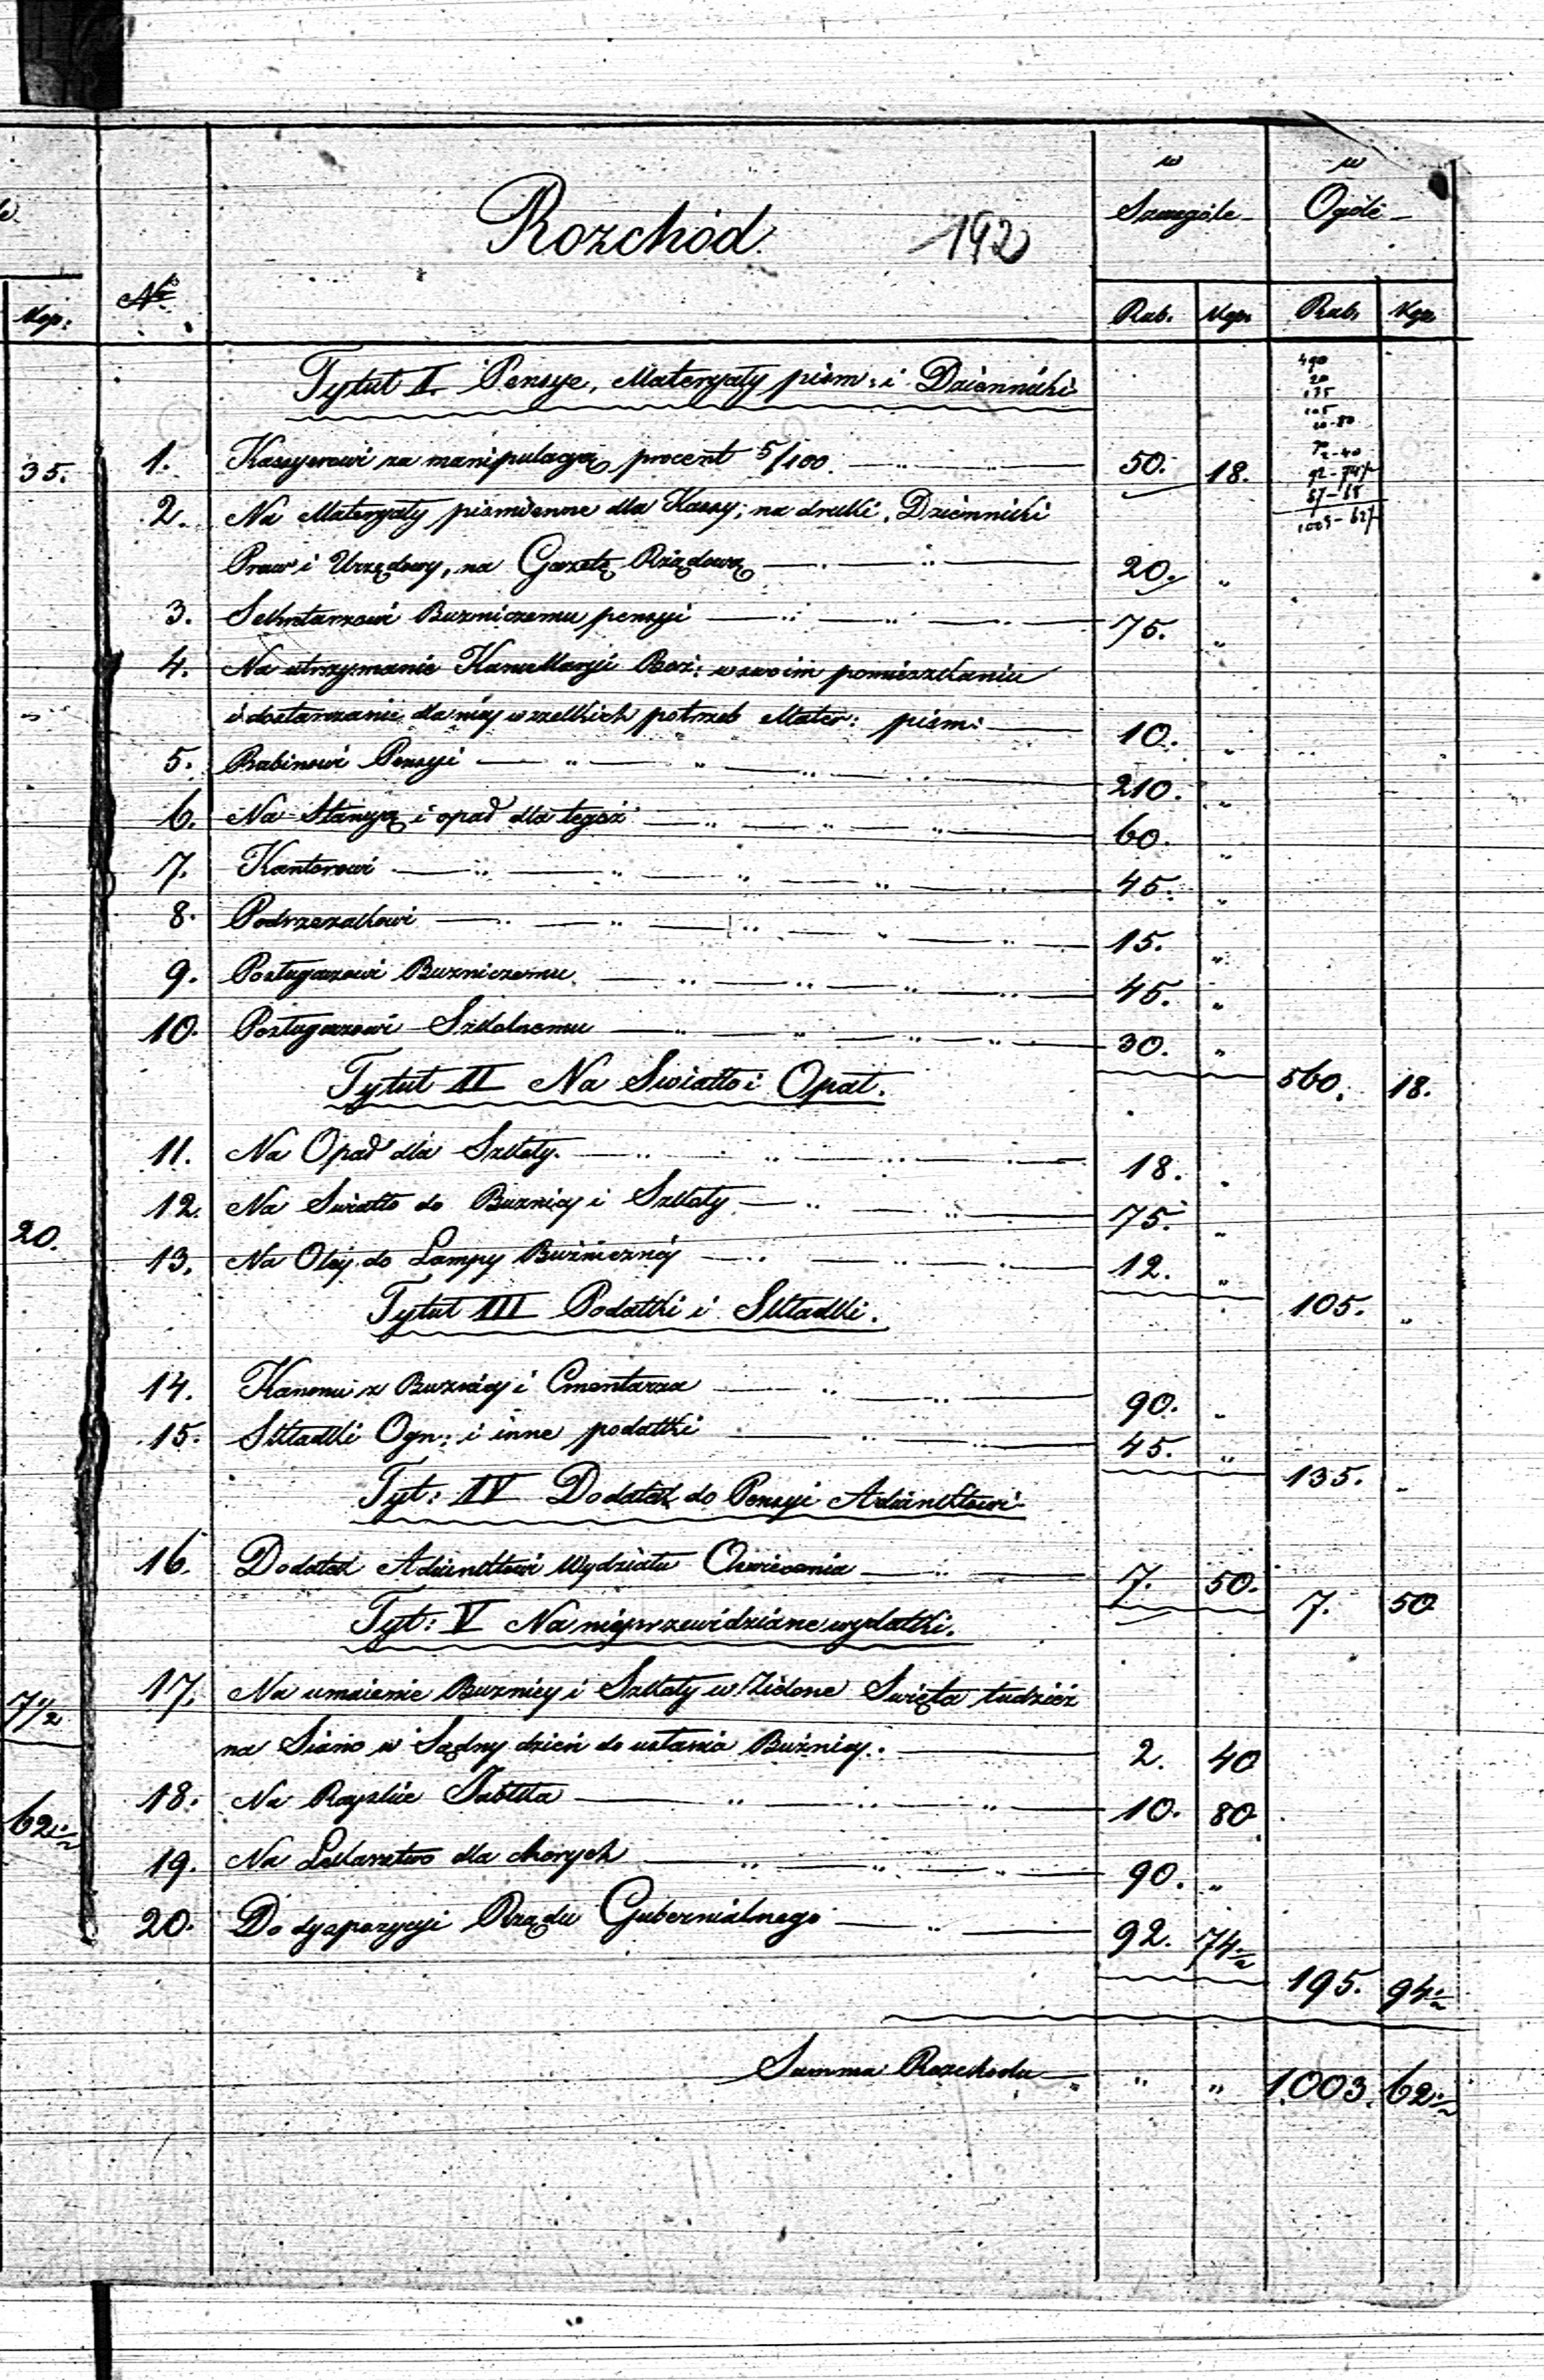 Rozchód. 192
w Szczególe w Ogóle
Kop: No Rub. Kop. Rub. Kop.
Tytuł I. Pensye, Materyały piśm: i Dzienniki
490
20
135
105
10-80
7 1/2
2-40
92-74 1/2
67-68
1003-62 1/2
35. 1. Kassyerowi za manipulacyą procent 5/100. 50. 18.
2. Na Materyały piśmienne dla Kassy; na druki, Dzienniki
Praw i Urzędowy, na Gazetę Rządową 20. "
3. Sekretarzowi Buzniczemu pensyi 75. "
4. Na utrzymanie Kancellaryi Boż: w swoim pomieszkaniu
i dostarczanie dla niéy wszelkich potrzeb Mater: piśm: 10. "
5. Rabinowi Pensyi 210. "
6. Na Stancyą i opał dla tegoż 60. "
7. Kantorowi 45. "
8. Podrzezakowi 15. "
9. Posługaczowi Buzniczemu 45. "
10. Posługaczowi Szkolnemu 30. "
Tytuł II Na Swiatło i Opał. 560. 18.
11. Na Opał dla Szkoły. 18. "
12. Na Swiatło do Buznicy i Szkoły 75. "
20. 13. Na Oléy do Lampy Buźnicznéy 12. "
Tytuł III Podatki i Składki. 105. "
14. Kanonu z Buznicy i Cmentarza 90. "
15. Składki Ogn: i inne podatki 45. "
Tyt: IV Dodatek do Pensyi Adiunktowi 135. "
16. Dodatek Adiunktowi Wydziału Oswiecenia 7. 50. 7. 50
Tyt: V Na nieprzewidziane wydatki.
7 1/2 17. Na umaienie Buznicy i Szkoły w Zielone Swięta tudzież
na Siano w Sądny dzień do usłania Buźnicy. 2. 40
62 1/2 18. Na Rayskie Jabłka 10. 80
19. Na Lekarstwo dla chorych 90. "
20. Do dyspozycyi Rządu Gubernialnego 92. 74 1/2
195. 94 1/2
Summa Rozchodu " " 1003. 62 1/2